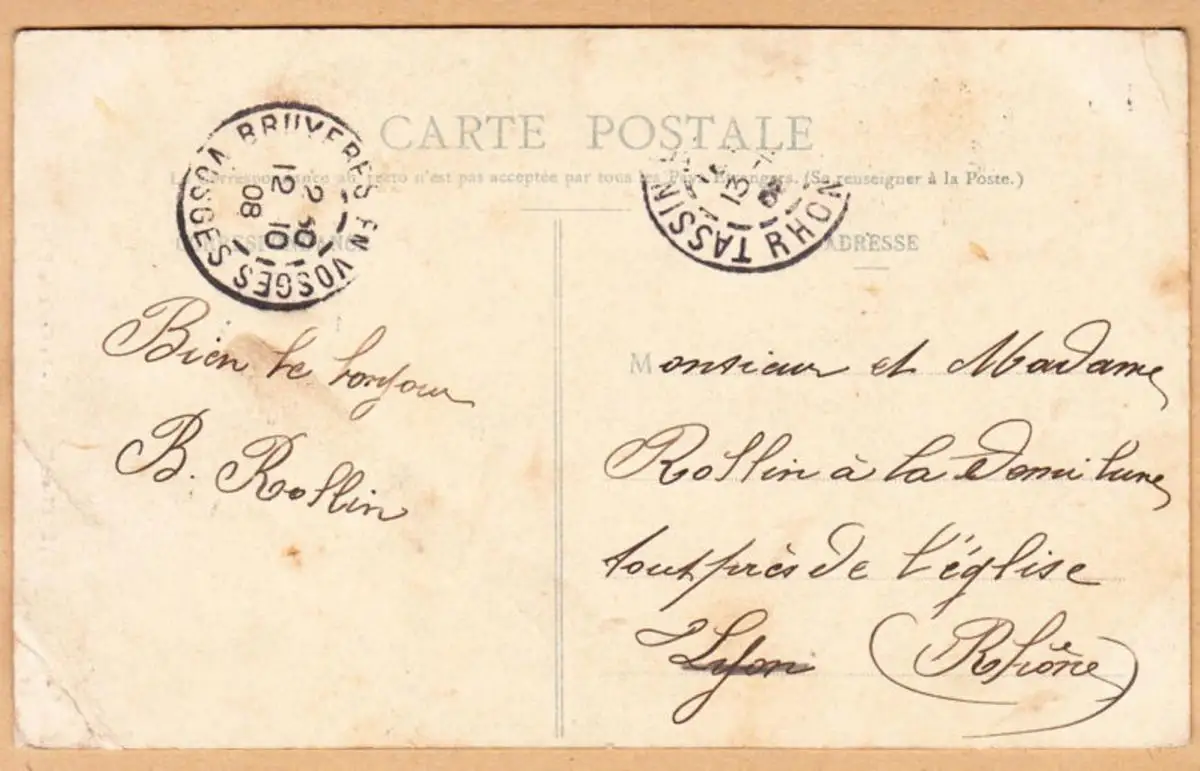 CARTE POSTALE
La Correspondance au recto n'est pas acceptée par tous les Pays Etrangers. (Se renseigner à la Poste.)
BRUYERES EN VOSGES VOSGES
2 12
12 10
08
TASSIN RHONE
13
CORRESPONDANCE
ADRESSE
Bien le bonjour
B. Rollin
Monsieur et Madame
Rollin à la Demi lune
tout près de l'église
Lyon (Rhône)